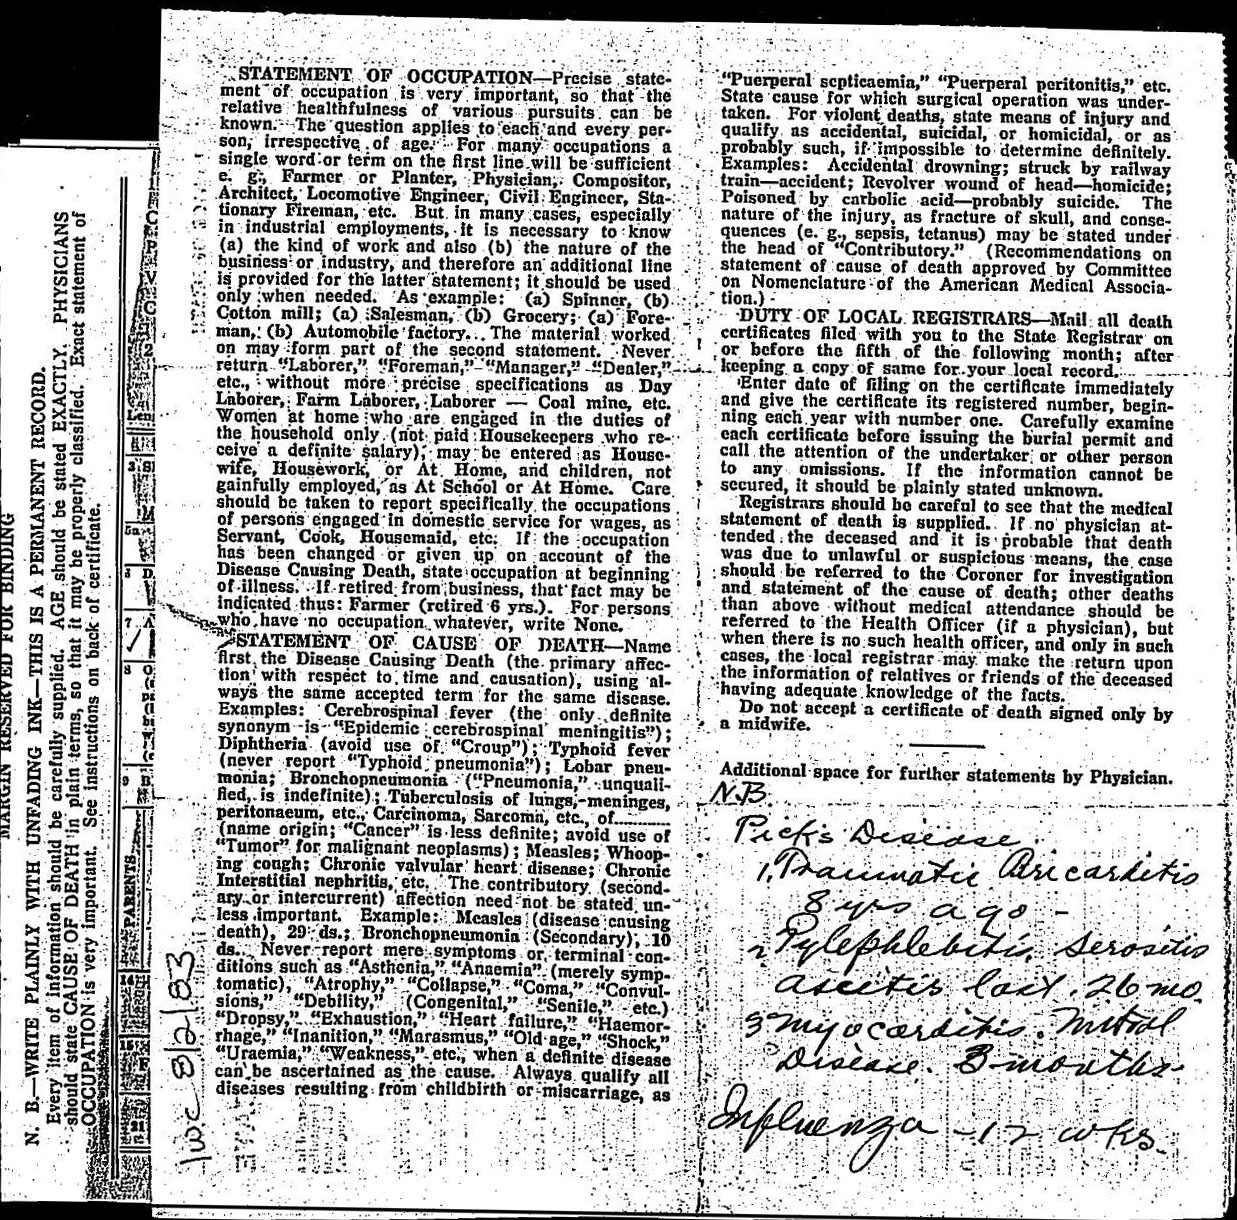 STATEMENT OF OCCUPATION—Precise state-
ment of occupation is very important, so that the
relative healthfulness of various pursuits can be
known. The question applies to each and every per-
son, irrespective of age. For many occupations a
single word or term on the first line will be sufficient
e. g., Farmer or Planter, Physician, Compositor,
Architect, Locomotive Engineer, Civil Engineer, Sta-
tionary Fireman, etc. But in many cases, especially
in industrial employments, it is necessary to know
(a) the kind of work and also (b) the nature of the
business or industry, and therefore an additional line
is provided for the latter statement; it should be used
only when needed. As example: (a) Spinner, (b)
Cotton mill; (a) Salesman, (b) Grocery; (a) Fore-
man, (b) Automobile factory. The material worked
on may form part of the second statement. Never
return "Laborer," "Foreman," "Manager," "Dealer,"
etc., without more precise specifications as Day
Laborer, Farm Laborer, Laborer — Coal mine, etc.
Women at home who are engaged in the duties of
the household only (not paid Housekeepers who re-
ceive a definite salary), may be entered as House-
wife, Housework, or At Home, and children, not
gainfully employed, as At School or At Home. Care
should be taken to report specifically the occupations
of persons engaged in domestic service for wages, as
Servant, Cook, Housemaid, etc. If the occupation
has been changed or given up on account of the
Disease Causing Death, state occupation at beginning
of illness. If retired from business, that fact may be
indicated thus: Farmer (retired 6 yrs.). For persons
who have no occupation whatever, write None.
STATEMENT OF CAUSE OF DEATH—Name
first the Disease Causing Death (the primary affec-
tion with respect to time and causation), using al-
ways the same accepted term for the same disease.
Examples: Cerebrospinal fever (the only definite
synonym is "Epidemic cerebrospinal meningitis");
Diphtheria (avoid use of "Croup"); Typhoid fever
(never report "Typhoid pneumonia"); Lobar pneu-
monia; Bronchopneumonia ("Pneumonia," unquali-
fied, is indefinite); Tuberculosis of lungs, meninges,
peritonaeum, etc., Carcinoma, Sarcoma, etc., of..........
(name origin; "Cancer" is less definite; avoid use of
"Tumor" for malignant neoplasms); Measles; Whoop-
ing cough; Chronic valvular heart disease; Chronic
Interstitial nephritis, etc. The contributory (second-
ary or intercurrent) affection need not be stated un-
less important. Example: Measles (disease causing
death), 29 ds.; Bronchopneumonia (Secondary), 10
ds. Never report mere symptoms or terminal con-
ditions such as "Asthenia," "Anaemia" (merely symp-
tomatic), "Atrophy," "Collapse," "Coma," "Convul-
sions," "Debility," (Congenital," "Senile," etc.)
"Dropsy," "Exhaustion," "Heart failure," "Haemor-
rhage," "Inanition," "Marasmus," "Old age," "Shock,"
"Uraemia," "Weakness," etc., when a definite disease
can be ascertained as the cause. Always qualify all
diseases resulting from childbirth or miscarriage, as
"Puerperal septicaemia," "Puerperal peritonitis," etc.
State cause for which surgical operation was under-
taken. For violent deaths, state means of injury and
qualify as accidental, suicidal, or homicidal, or as
probably such, if impossible to determine definitely.
Examples: Accidental drowning; struck by railway
train—accident; Revolver wound of head—homicide;
Poisoned by carbolic acid—probably suicide. The
nature of the injury, as fracture of skull, and conse-
quences (e. g., sepsis, tetanus) may be stated under
the head of "Contributory." (Recommendations on
statement of cause of death approved by Committee
on Nomenclature of the American Medical Associa-
tion.)
DUTY OF LOCAL REGISTRARS—Mail all death
certificates filed with you to the State Registrar on
or before the fifth of the following month; after
keeping a copy of same for your local record.
Enter date of filing on the certificate immediately
and give the certificate its registered number, begin-
ning each year with number one. Carefully examine
each certificate before issuing the burial permit and
call the attention of the undertaker or other person
to any omissions. If the information cannot be
secured, it should be plainly stated unknown.
Registrars should be careful to see that the medical
statement of death is supplied. If no physician at-
tended the deceased and it is probable that death
was due to unlawful or suspicious means, the case
should be referred to the Coroner for investigation
and statement of the cause of death; other deaths
than above without medical attendance should be
referred to the Health Officer (if a physician), but
when there is no such health officer, and only in such
cases, the local registrar may make the return upon
the information of relatives or friends of the deceased
having adequate knowledge of the facts.
Do not accept a certificate of death signed only by
a midwife.
Additional space for further statements by Physician.
N.B.
Pick's Disease
1. Traumatic Pericarditis
8 yrs ago -
2 Pylephlebitis, serositis
ascitis last 26 mo.
3 Myocarditis. Mitral
Disease. 3 months.
Influenza - 12 wks.
lwc 8/2/83
MARGIN RESERVED FOR BINDING
N. B.—WRITE PLAINLY WITH UNFADING INK—THIS IS A PERMANENT RECORD.
Every item of information should be carefully supplied. AGE should be stated EXACTLY. PHYSICIANS
should state CAUSE OF DEATH in plain terms, so that it may be properly classified. Exact statement of
OCCUPATION is very important. See instructions on back of certificate.
PARENTS